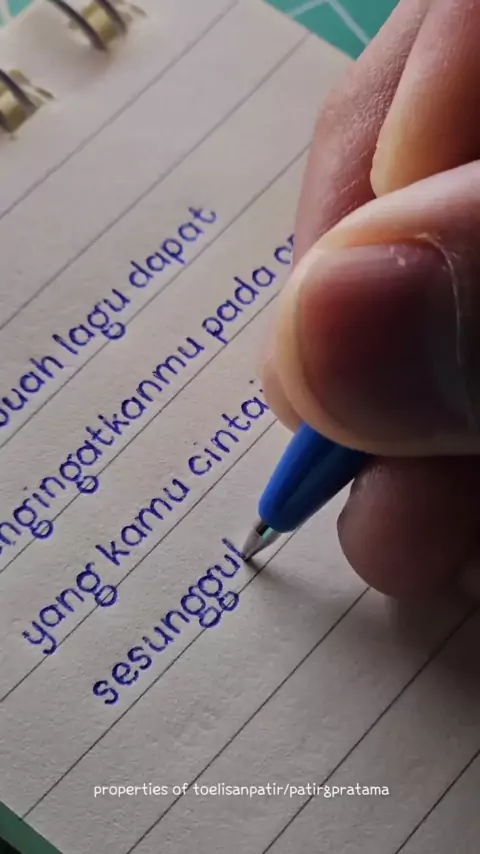 buah lagu dapat
ngingatkanmu pada or
yang kamu cintai
sesunggul
properties of toelisanpatir/patirgpratama